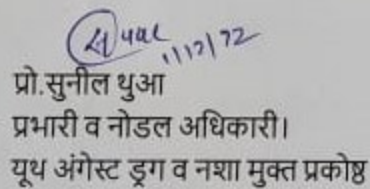 प्रो.सुनील थुआ
प्रभारी व नोडल अधिकारी।
यूथ अंगेस्ट ड्रग व नशा मुक्त प्रकोष्ठ